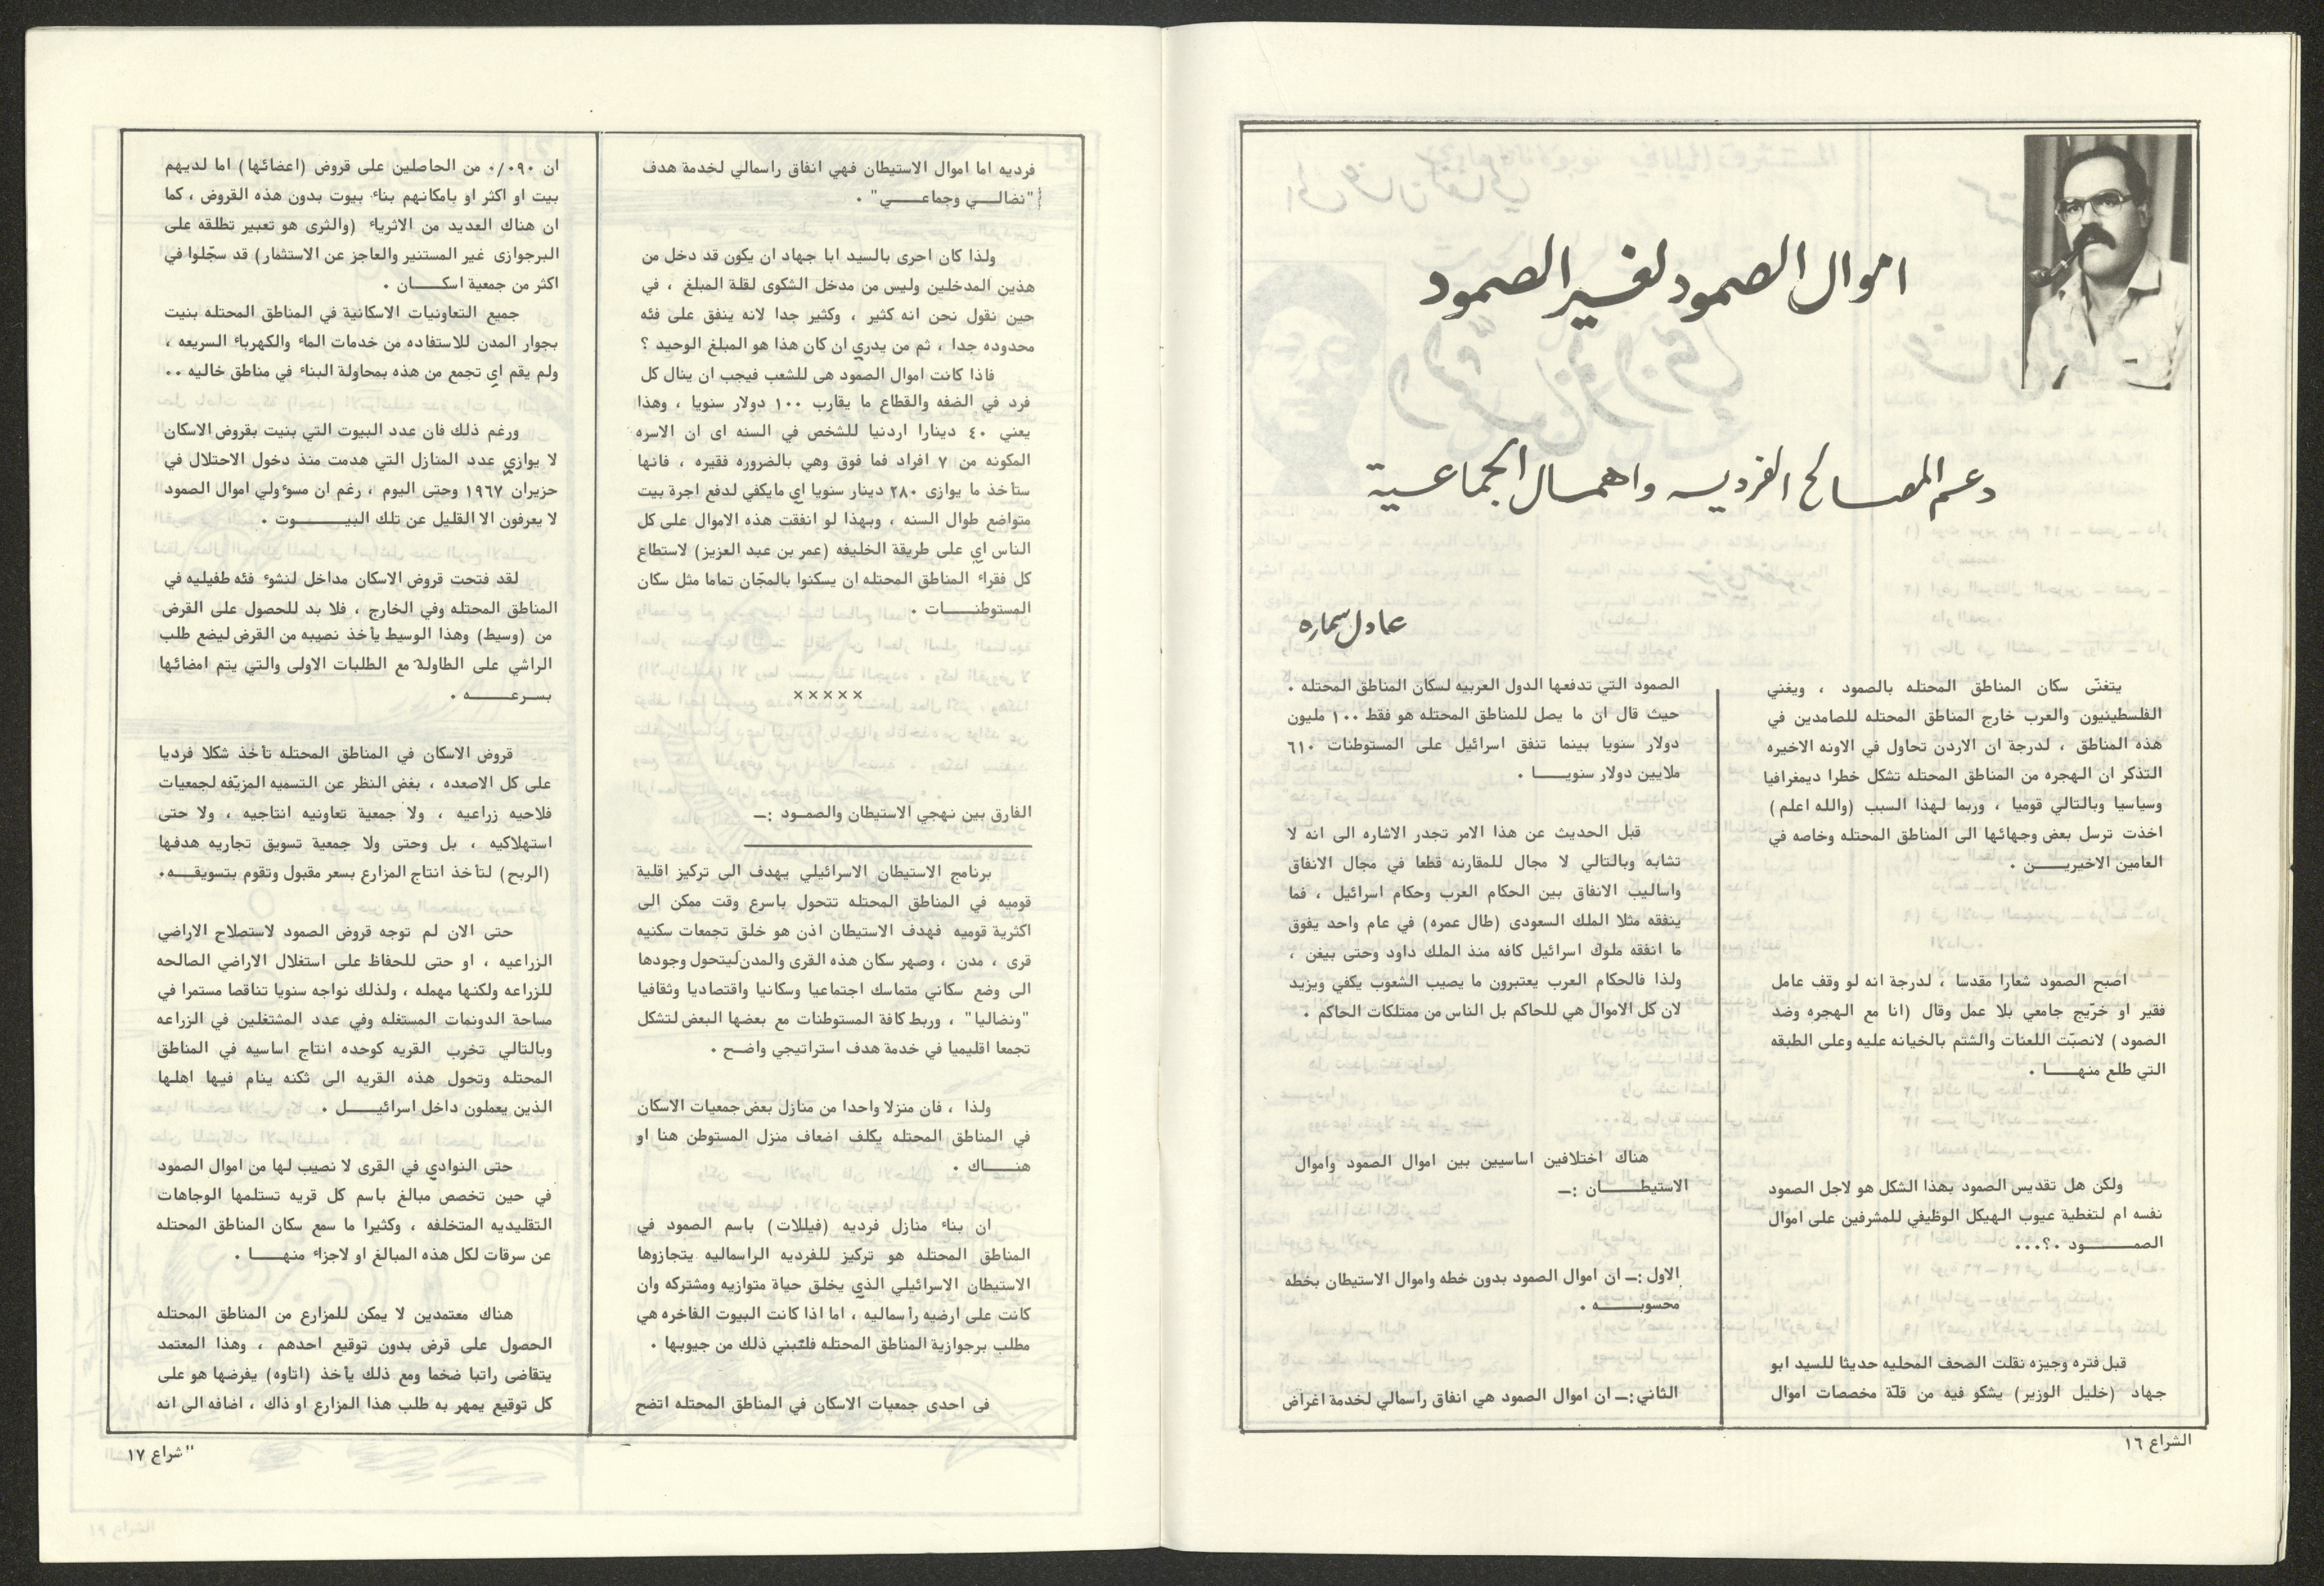 اموال الصمود لغير الصمود
دعم المصالح الفرديه واهمال الجماعية
عادل سماره
يتغنّى سكان المناطق المحتله بالصمود ، ويغني
الفلسطينيون والعرب خارج المناطق المحتله للصامدين في
هذه المناطق ، لدرجة ان الاردن تحاول في الاونه الاخيره
التذكر ان الهجره من المناطق المحتله تشكل خطرا ديمغرافيا
وسياسيا وبالتالي قوميا ، وربما لهذا السبب (والله اعلم)
اخذت ترسل بعض وجهائها الى المناطق المحتله وخاصه في
العامين الاخيريـــن .
اصبح الصمود شعارا مقدسا ، لدرجة انه لو وقف عامل
فقير او خرّيج جامعي بلا عمل وقال (انا مع الهجره وضد
الصمود) لانصبّت اللعنات والشتم بالخيانه عليه وعلى الطبقه
التي طلع منهـــا .
ولكن هل تقديس الصمود بهذا الشكل هو لاجل الصمود
نفسه ام لتغطية عيوب الهيكل الوظيفي للمشرفين على اموال
الصمــــــود .؟...
قبل فتره وجيزه نقلت الصحف المحليه حديثا للسيد ابو
جهاد (خليل الوزير) يشكو فيه من قلّة مخصصات اموال
الصمود التي تدفعها الدول العربيه لسكان المناطق المحتله .
حيث قال ان ما يصل للمناطق المحتله هو فقط ١٠٠ مليون
دولار سنويا بينما تنفق اسرائيل على المستوطنات ٦١٠
ملايين دولار سنويــــا .
قبل الحديث عن هذا الامر تجدر الاشاره الى انه لا
تشابه وبالتالي لا مجال للمقارنه قطعا في مجال الانفاق
واساليب الانفاق بين الحكام العرب وحكام اسرائيل ، فما
ينفقه مثلا الملك السعودى (طال عمره) في عام واحد يفوق
ما انفقه ملوك اسرائيل كافه منذ الملك داود وحتى بيغن ،
ولذا فالحكام العرب يعتبرون ما يصيب الشعوب يكفي ويزيد
لان كل الاموال هي للحاكم بل الناس من ممتلكات الحاكم .
هناك اختلافين اساسيين بين اموال الصمود واموال
الاستيطــــــان :ــ
الاول :ــ ان اموال الصمود بدون خطه واموال الاستيطان بخطه
محسوبــــــه .
الثاني :ــ ان اموال الصمود هي انفاق راسمالي لخدمة اغراض
الشراع ١٦
فرديه اما اموال الاستيطان فهي انفاق راسمالي لخدمة هدف
"نضالــــي وجماعــــــي" .
ولذا كان احرى بالسيد ابا جهاد ان يكون قد دخل من
هذين المدخلين وليس من مدخل الشكوى لقلة المبلغ ، في
حين نقول نحن انه كثير ، وكثير جدا لانه ينفق على فئه
محدوده جدا ، ثم من يدري ان كان هذا هو المبلغ الوحيد ؟
فاذا كانت اموال الصمود هى للشعب فيجب ان ينال كل
فرد في الضفه والقطاع ما يقارب ١٠٠ دولار سنويا ، وهذا
يعني ٤٠ دينارا اردنيا للشخص في السنه اى ان الاسره
المكونه من ٧ افراد فما فوق وهي بالضروره فقيره ، فانها
ستأخذ ما يوازى ٢٨٠ دينار سنويا اي مايكفي لدفع اجرة بيت
متواضع طوال السنه ، وبهذا لو انفقت هذه الاموال على كل
الناس اي على طريقة الخليفه (عمر بن عبد العزيز) لاستطاع
كل فقراء المناطق المحتله ان يسكنوا بالمجّان تماما مثل سكان
المستوطنــــات .
×××××
الفارق بين نهجي الاستيطان والصمـود :ــ
برنامج الاستيطان الاسرائيلي يهدف الى تركيز اقلية
قوميه في المناطق المحتله تتحول باسرع وقت ممكن الى
اكثرية قوميه فهدف الاستيطان اذن هو خلق تجمعات سكنيه
قرى ، مدن ، وصهر سكان هذه القرى والمدن ليتحول وجودها
الى وضع سكاني متماسك اجتماعيا وسكانيا واقتصاديا وثقافيا
"ونضاليا" ، وربط كافة المستوطنات مع بعضها البعض لتشكل
تجمعا اقليميا في خدمة هدف استراتيجي واضـح .
ولذا ، فان منزلا واحدا من منازل بعض جمعيات الاسكان
في المناطق المحتله يكلف اضعاف منزل المستوطن هنا او
هنــــاك .
ان بناء منازل فرديه (فيللات) باسم الصمود في
المناطق المحتله هو تركيز للفرديه الراسماليه يتجازوها
الاستيطان الاسرائيلي الذي يخلق حياة متوازيه ومشتركه وان
كانت على ارضيه رأسماليه ، اما اذا كانت البيوت الفاخره هي
مطلب برجوازية المناطق المحتله فلتبني ذلك من جيوبها .
فى احدى جمعيات الاسكان في المناطق المحتله اتضح
ان ٠/٠٩٠ من الحاصلين على قروض (اعضائها) اما لديهم
بيت او اكثر او بامكانهم بناء بيوت بدون هذه القروض ، كما
ان هناك العديد من الاثرياء (والثرى هو تعبير تطلقه على
البرجوازى غير المستنير والعاجز عن الاستثمار) قد سجّلوا في
اكثر من جمعية اسكـــــان .
جميع التعاونيات الاسكانية في المناطق المحتله بنيت
بجوار المدن للاستفاده من خدمات الماء والكهرباء السريعه ،
ولم يقم اي تجمع من هذه بمحاولة البناء في مناطق خاليه ..
ورغم ذلك فان عدد البيوت التي بنيت بقروض الاسكان
لا يوازي عدد المنازل التي هدمت منذ دخول الاحتلال في
حزيران ١٩٦٧ وحتى اليوم ، رغم ان مسؤولي اموال الصمود
لا يعرفون الا القليل عن تلك البيــــــوت .
لقد فتحت قروض الاسكان مداخل لنشوء فئه طفيليه في
المناطق المحتله وفي الخارج ، فلا بد للحصول على القرض
من (وسيط) وهذا الوسيط يأخذ نصيبه من القرض ليضع طلب
الراشي على الطاولة مع الطلبات الاولى والتي يتم امضائها
بسـرعــــــه .
قروض الاسكان في المناطق المحتله تأخذ شكلا فرديا
على كل الاصعده ، بغض النظر عن التسميه المزيّفه لجمعيات
فلاحيه زراعيه ، ولا جمعية تعاونيه انتاجيه ، ولا حتى
استهلاكيه ، بل وحتى ولا جمعية تسويق تجاريه هدفها
(الربح) لتأخذ انتاج المزارع بسعر مقبول وتقوم بتسويقــه.
حتى الان لم توجه قروض الصمود لاستصلاح الاراضي
الزراعيه ، او حتى للحفاظ على استغلال الاراضي الصالحه
للزراعه ولكنها مهمله ، ولذلك نواجه سنويا تناقصا مستمرا في
مساحة الدونمات المستغله وفي عدد المشتغلين في الزراعه
وبالتالي تخرب القريه كوحده انتاج اساسيه في المناطق
المحتله وتحول هذه القريه الى ثكنه ينام فيها اهلها
الذين يعملون داخل اسرائيـــــل .
حتى النوادي في القرى لا نصيب لها من اموال الصمود
في حين تخصص مبالغ باسم كل قريه تستلمها الوجاهات
التقليديه المتخلفه ، وكثيرا ما سمع سكان المناطق المحتله
عن سرقات لكل هذه المبالغ او لاجزاء منهـــا .
هناك معتمدين لا يمكن للمزارع من المناطق المحتله
الحصول على قرض بدون توقيع احدهم ، وهذا المعتمد
يتقاضى راتبا ضخما ومع ذلك يأخذ (اتاوه) يفرضها هو على
كل توقيع يمهر به طلب هذا المزارع او ذاك ، اضافه الى انه
"شراع ١٧